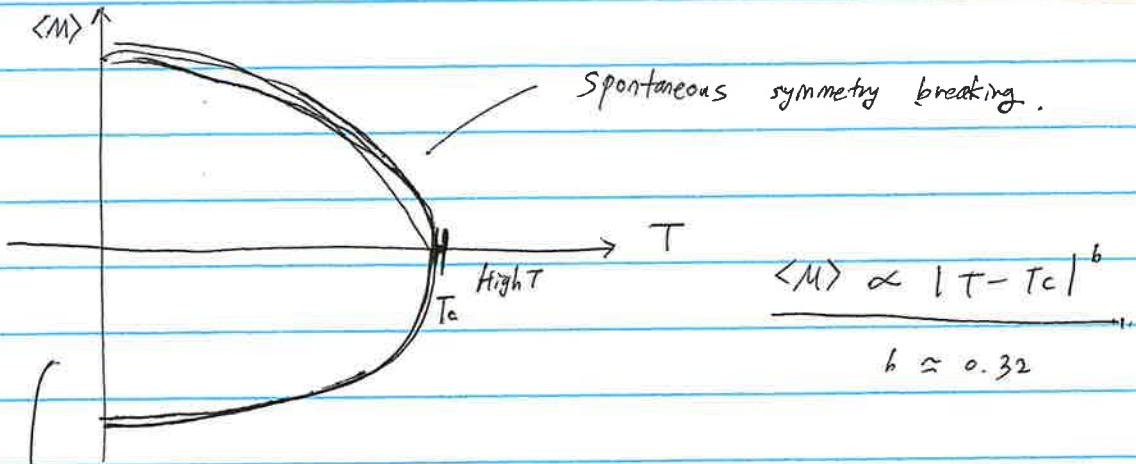 <M>
Spontaneous symmetry breaking.
T
High T
Tc
<M> ∝ |T - Tc|^b
b ≈ 0.32